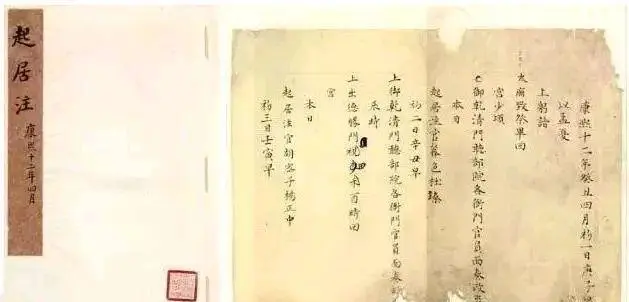 起居注
康熙十二年四月
康熙十二年癸丑四月初一日庚子
以孟夏
上躬詣
太廟致祭畢回
宮少頃
上御乾清門聽部院各衙門官員面奏政
本日
起居注官色杜臻
初二日辛丑早
上御乾清門聽部院各衙門官員面奏
辰時
上出德勝門視禾酉時回
宮
本日
起居注官胡密子楊正中
初三日壬寅早